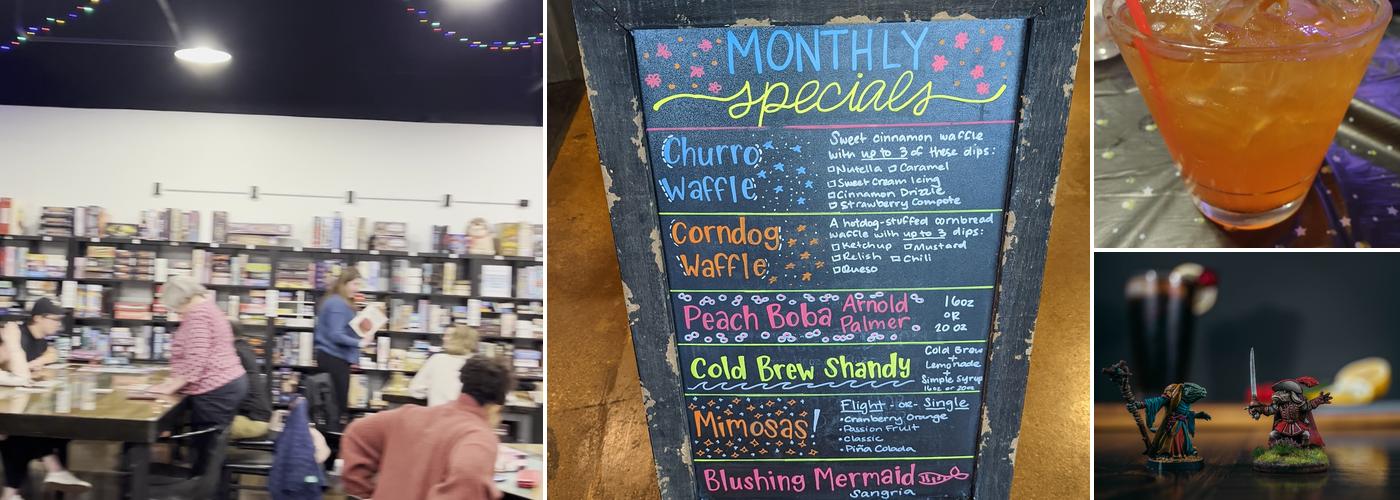 MONTHLY
specials
Churro
Waffle
Sweet cinnamon waffle
with up to 3 of these dips:
Nutella Caramel
Sweet Cream Icing
Cinnamon Drizzle
Strawberry Compote
Corndog
Waffle
A hotdog-stuffed cornbread
waffle with up to 3 dips:
Ketchup Mustard
Relish Chili
Queso
Peach Boba Arnold
Palmer
16oz
OR
20 oz
Cold Brew Shandy
Cold Brew
+
Lemonade
+
Simple Syrup
16oz or 20oz
Mimosas!
Flight -or- Single
•Cranberry Orange
•Passion Fruit
•Classic
•Piña Colada
Blushing Mermaid
Sangria